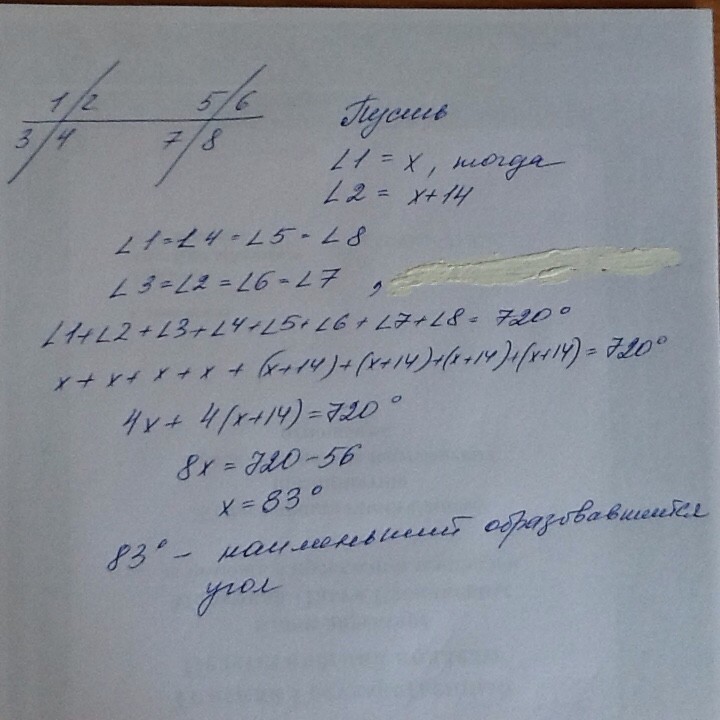 1 2 5 6
3 4 7 8
Пусть
∠1 = x, тогда
∠2 = x+14
∠1=∠4=∠5=∠8
∠3=∠2=∠6=∠7 ,
∠1+∠2+∠3+∠4+∠5+∠6+∠7+∠8= 720°
x + x + x + x + (x+14)+(x+14)+(x+14)+(x+14)=720°
4x + 4(x+14)=720°
8x = 720-56
x = 83°
83° - наименьший образовавшийся
угол